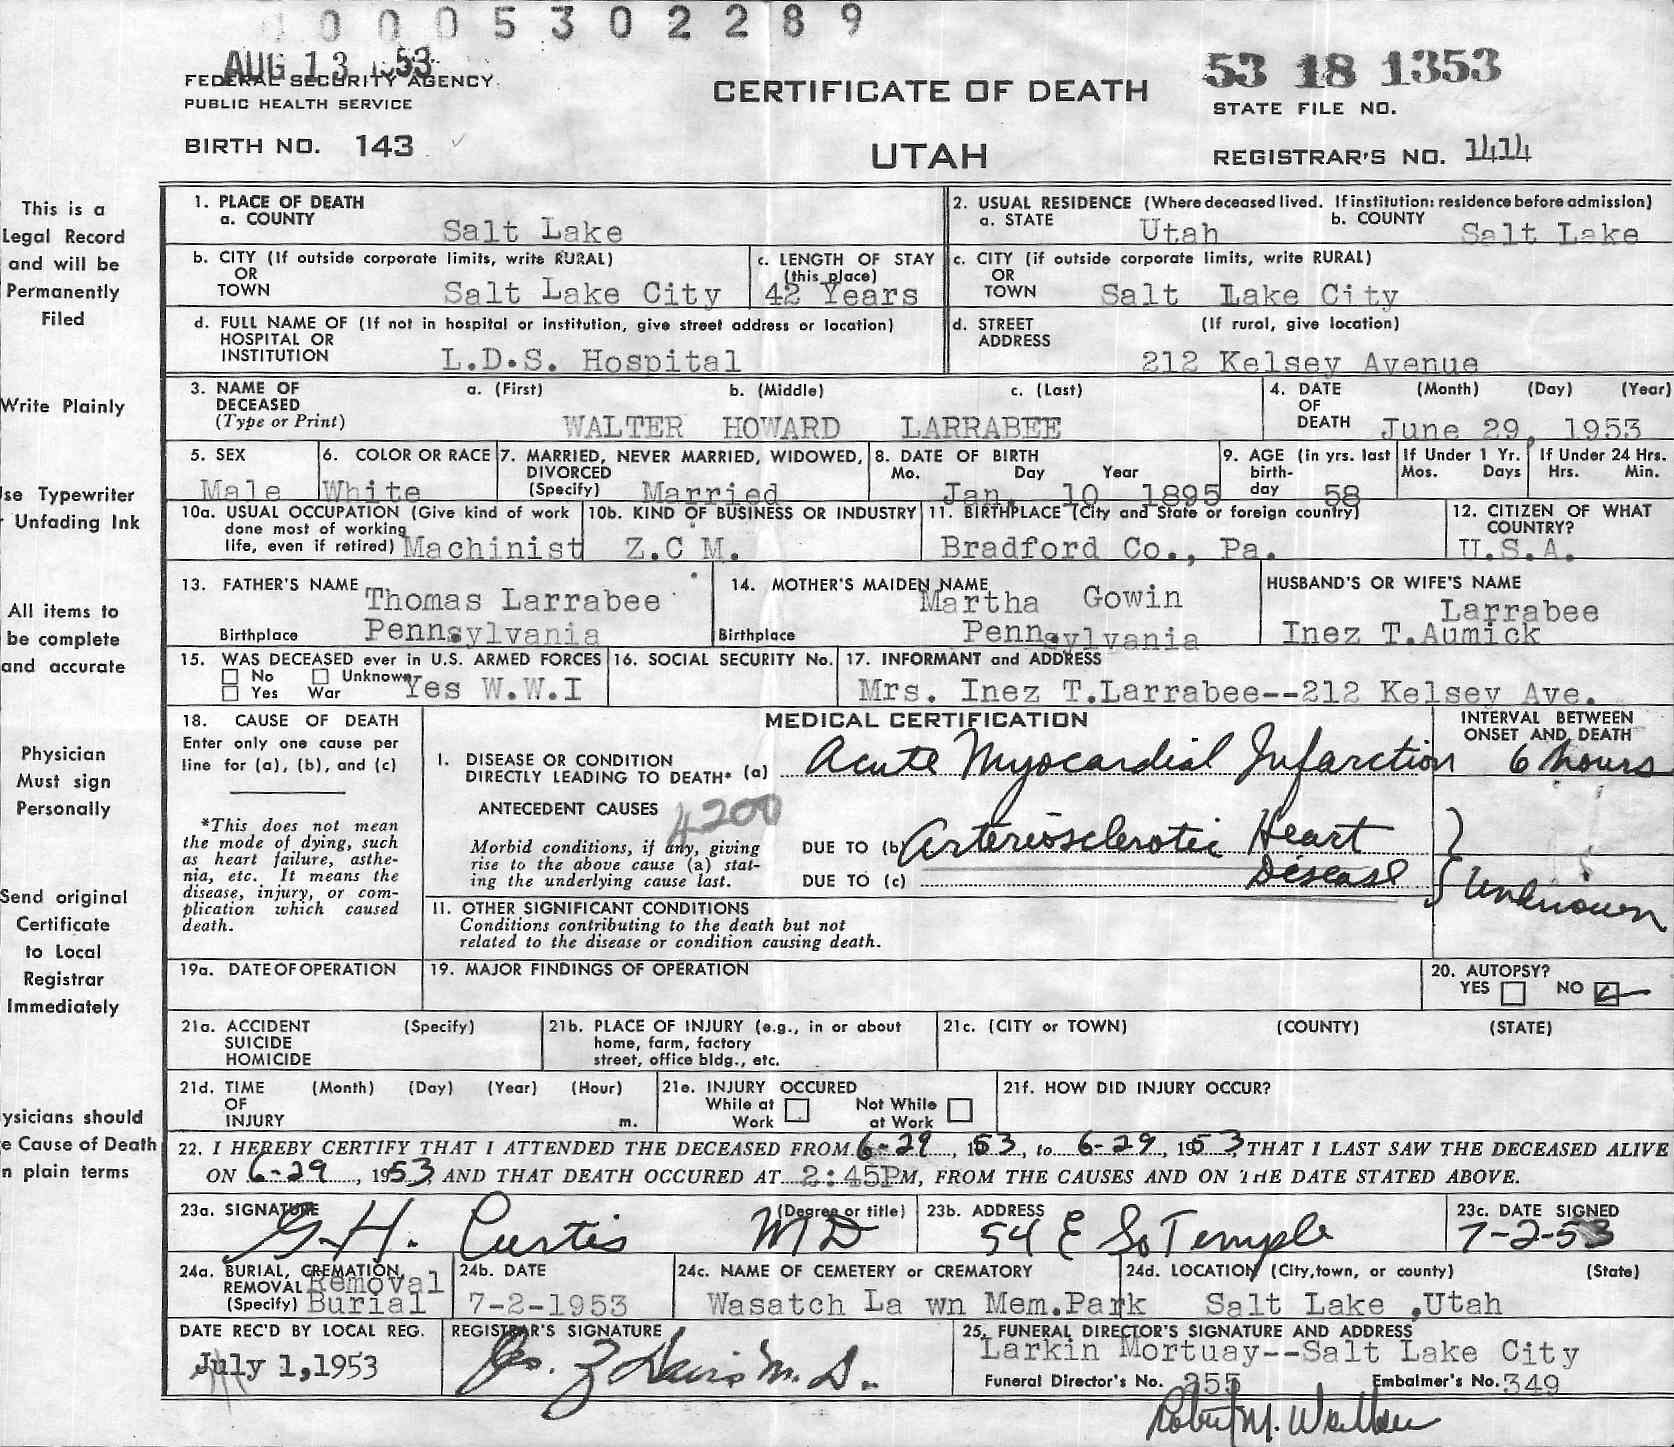 0 0 0 5 3 0 2 2 8 9
AUG 13 1953
FEDERAL SECURITY AGENCY
PUBLIC HEALTH SERVICE
CERTIFICATE OF DEATH
53 18 1353
STATE FILE NO.
BIRTH NO. 143
UTAH
REGISTRAR'S NO. 1414
This is a
Legal Record
and will be
Permanently
Filed
Write Plainly
se Typewriter
Unfading Ink
All items to
be complete
and accurate
Physician
Must sign
Personally
Send original
Certificate
to Local
Registrar
Immediately
ysicians should
e Cause of Death
n plain terms
1. PLACE OF DEATH
a. COUNTY Salt Lake
2. USUAL RESIDENCE (Where deceased lived. If institution: residence before admission)
a. STATE Utah b. COUNTY Salt Lake
b. CITY (If outside corporate limits, write RURAL)
OR
TOWN Salt Lake City
c. LENGTH OF STAY
(this place)
42 Years
c. CITY (if outside corporate limits, write RURAL)
OR
TOWN Salt Lake City
d. FULL NAME OF (If not in hospital or institution, give street address or location)
HOSPITAL OR
INSTITUTION L.D.S. Hospital
d. STREET (If rural, give location)
ADDRESS
212 Kelsey Avenue
3. NAME OF a. (First) b. (Middle) c. (Last)
DECEASED
(Type or Print) WALTER HOWARD LARRABEE
4. DATE (Month) (Day) (Year)
OF
DEATH June 29, 1953
5. SEX
Male
6. COLOR OR RACE
White
7. MARRIED, NEVER MARRIED, WIDOWED,
DIVORCED
(Specify) Married
8. DATE OF BIRTH
Mo. Day Year
Jan. 10 1895
9. AGE (in yrs. last
birth-
day 58
If Under 1 Yr.
Mos. Days
If Under 24 Hrs.
Hrs. Min.
10a. USUAL OCCUPATION (Give kind of work
done most of working
life, even if retired) Machinist
10b. KIND OF BUSINESS OR INDUSTRY
Z.C M.
11. BIRTHPLACE (City and State or foreign country)
Bradford Co., Pa.
12. CITIZEN OF WHAT
COUNTRY?
U.S.A.
13. FATHER'S NAME Thomas Larrabee
Birthplace Pennsylvania
14. MOTHER'S MAIDEN NAME Martha Gowin
Birthplace Pennsylvania
HUSBAND'S OR WIFE'S NAME
Larrabee
Inez T.Aumick
15. WAS DECEASED ever in U.S. ARMED FORCES
No Unknown
Yes War Yes W.W.I
16. SOCIAL SECURITY No.
17. INFORMANT and ADDRESS
Mrs. Inez T.Larrabee--212 Kelsey Ave.
18. CAUSE OF DEATH
Enter only one cause per
line for (a), (b), and (c)
*This does not mean
the mode of dying, such
as heart failure, asthe-
nia, etc. It means the
disease, injury, or com-
plication which caused
death.
MEDICAL CERTIFICATION
INTERVAL BETWEEN
ONSET AND DEATH
I. DISEASE OR CONDITION
DIRECTLY LEADING TO DEATH* (a) Acute Myocardial Infarction 6 hours
ANTECEDENT CAUSES 4200
Morbid conditions, if any, giving
rise to the above cause (a) stat-
ing the underlying cause last.
DUE TO (b) Arteriosclerotic Heart
DUE TO (c) Disease
Unknown
II. OTHER SIGNIFICANT CONDITIONS
Conditions contributing to the death but not
related to the disease or condition causing death.
19a. DATE OF OPERATION
19. MAJOR FINDINGS OF OPERATION
20. AUTOPSY?
YES NO
21a. ACCIDENT (Specify)
SUICIDE
HOMICIDE
21b. PLACE OF INJURY (e.g., in or about
home, farm, factory
street, office bldg., etc.
21c. (CITY or TOWN) (COUNTY) (STATE)
21d. TIME (Month) (Day) (Year) (Hour)
OF
INJURY m.
21e. INJURY OCCURED
While at Not While
Work at Work
21f. HOW DID INJURY OCCUR?
22. I HEREBY CERTIFY THAT I ATTENDED THE DECEASED FROM 6-29, 1953, to 6-29, 1953 THAT I LAST SAW THE DECEASED ALIVE
ON 6-29, 1953 AND THAT DEATH OCCURED AT 2:45PM, FROM THE CAUSES AND ON THE DATE STATED ABOVE.
23a. SIGNATURE (Degree or title)
G. H. Curtis MD
23b. ADDRESS
54 E So Temple
23c. DATE SIGNED
7-2-53
24a. BURIAL, CREMATION,
REMOVAL Removal
(Specify) Burial
24b. DATE
7-2-1953
24c. NAME OF CEMETERY or CREMATORY
Wasatch La wn Mem.Park
24d. LOCATION (City, town, or county) (State)
Salt Lake ,Utah
DATE REC'D BY LOCAL REG.
July 1,1953
REGISTRAR'S SIGNATURE
Geo. Z Davis M.D.
25. FUNERAL DIRECTOR'S SIGNATURE AND ADDRESS
Larkin Mortuay--Salt Lake City
Funeral Director's No. 255 Embalmer's No. 349
Robert M. Walker